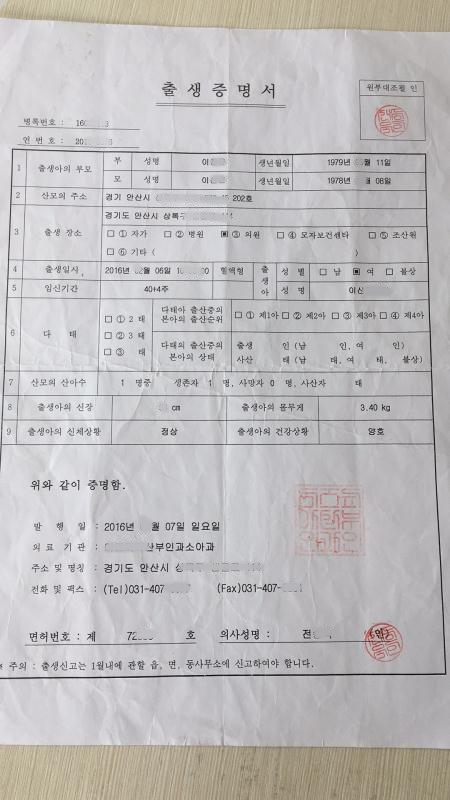 출 생 증 명 서
원부대조필 인
병록번호 :
연 번호 :
1 출생아의 부모 부 성명 이 생년월일 1979년 월 11일
모 성명 이 생년월일 1978년 월 08일
2 산모의 주소 경기 안산시 202호
경기도 안산시 상록구
3 출생 장소 □ ① 자가 □ ② 병원 ▣ ③ 의원 □ ④ 모자보건센타 □ ⑤ 조산원
□ ⑥ 기타 ( )
4 출생일시 2016년 월 06일 혈액형 출생아 성 별 □ 남 ▣ 여 □ 불상
5 임신기간 40+4주 성 명
6 다 태 □ ① 2 태 □ ② 3 태 □ ③ 태
다태아 출산중의 본아의 출산순위 □ ① 제1아 □ ② 제2아 □ ③ 제3아 □ ④ 제4아
다태의 출산중의 본아의 상태 출생 인 (남 인, 여 인)
사산 태 (남 태, 여 태, 불상)
7 산모의 산아수 1 명중 생존자 1 명, 사망자 0 명, 사산자 태
8 출생아의 신장 cm 출생아의 몸무게 3.40 kg
9 출생아의 신체상황 정상 출생아의 건강상황 양호
위와 같이 증명함.
발 행 일 : 2016년 월 07일 일요일
의 료 기 관 : 산부인과소아과
주소 및 명칭 : 경기도 안산시
전화 및 팩스 : (Tel)031-407- (Fax)031-407-
면허번호 : 제 호 의사성명 : 전 (인)
* 주의 : 출생신고는 1월내에 관할 읍, 면, 동사무소에 신고하여야 합니다.